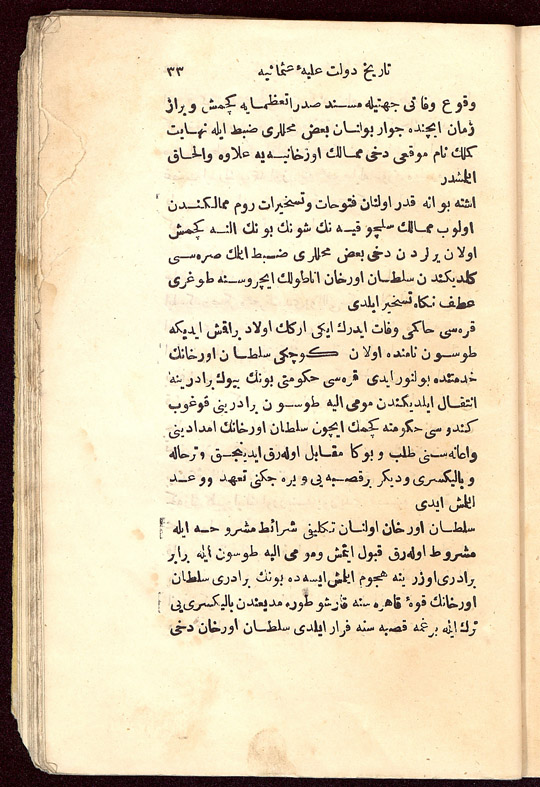 تاریخ دولت علیهٔ عثمانیه ٣٣
وقوع وفاتی جهتیله مسند صدراتعظمایه کچمش و براز
زمان ایچنده جوار بولنان بعض محللری ضبط ایله نهایت
کملك نام موقعی دخی ممالك اوزخانیه‌یه علاوه والحاق
ایلمشدر
اشته بو آنه قدر اولنان فتوحات وتسخیرات روم ممالکندن
اولوب ممالك سلجوقیه نك شونك بونك الـنه کچمش
اولان یرلردن دخی بعض محللری ضبط ایتمك صره سی
کلدیکندن سلطان اورخان اناطولینك ایچروسنه طوغری
عطف نکاه تسخیر ایلدی
قره سی حاکمی وفات ایدرك ایکی ارکك اولاد براقمش ایدیکه
طوسون نامنده اولان کوچکی سلطان اورخانك
خدمتنده بولنور ایدی قره سی حکومتی بونك بیوك برادرینه
انتقال ایلدیکندن مومی الیه طوسون برادرینی قوغوب
کندوسی حکومته کچمك ایچون سلطان اورخانك امدادینی
واعانه سنی طلب و بوکا مقابل اوله رق ایدینجق و ترحاله
و بالیکسری و دیکر برقصبه یی ویره جکنی تعهد ووعد
ایتمش ایدی
سلطان اورخان اولنان تکلیفی شرائط مشروحه ایله
مشروط اوله رق قبول ایتمش ومومی الیه طوسون ایله برابر
برادری اوزرینه هجوم ایتمش ایسه ده بونك برادری سلطان
اورخانك قوهٔ قاهره سنه قارشو طوره مدیغندن بالیکسری یی
ترك ایله برغمه قصبه سنه فرار ایلدی سلطان اورخان دخی